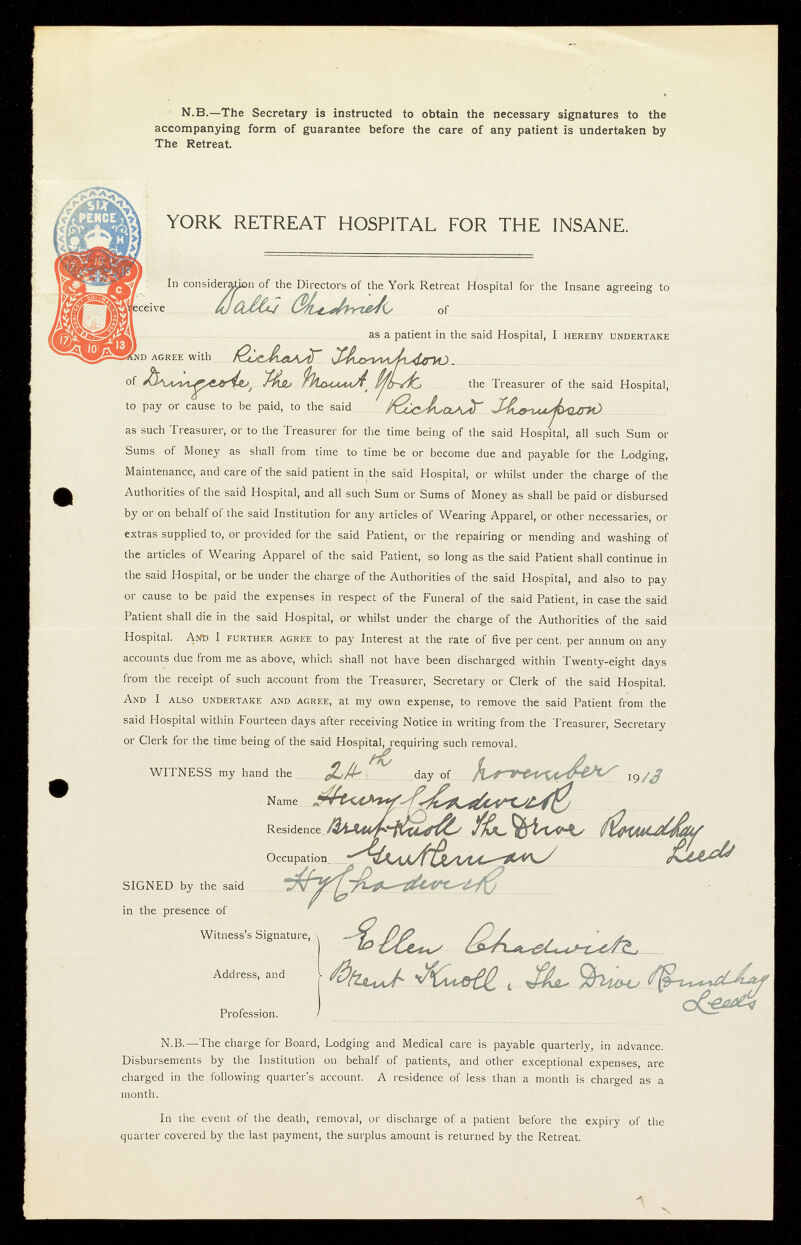 N.B.—The Secretary is instructed to obtain the necessary signatures to the
accompanying form of guarantee before the care of any patient is undertaken by
The Retreat.
SIX
PENCE
H
YORK RETREAT HOSPITAL FOR THE INSANE.
C
17 10 13
In consideration of the Directors of the York Retreat Hospital for the Insane agreeing to
receive Wallis Chadwick of
as a patient in the said Hospital, I HEREBY UNDERTAKE
AND AGREE with Richard Thompson.
of Dringcote, The Mount, York the Treasurer of the said Hospital,
to pay or cause to be paid, to the said Richard Thompson
as such Treasurer, or to the Treasurer for the time being of the said Hospital, all such Sum or
Sums of Money as shall from time to time be or become due and payable for the Lodging,
Maintenance, and care of the said patient in the said Hospital, or whilst under the charge of the
Authorities of the said Hospital, and all such Sum or Sums of Money as shall be paid or disbursed
by or on behalf of the said Institution for any articles of Wearing Apparel, or other necessaries, or
extras supplied to, or provided for the said Patient, or the repairing or mending and washing of
the articles of Wearing Apparel of the said Patient, so long as the said Patient shall continue in
the said Hospital, or be under the charge of the Authorities of the said Hospital, and also to pay
or cause to be paid the expenses in respect of the Funeral of the said Patient, in case the said
Patient shall die in the said Hospital, or whilst under the charge of the Authorities of the said
Hospital. AND I FURTHER AGREE to pay Interest at the rate of five per cent. per annum on any
accounts due from me as above, which shall not have been discharged within Twenty-eight days
from the receipt of such account from the Treasurer, Secretary or Clerk of the said Hospital.
AND I ALSO UNDERTAKE AND AGREE, at my own expense, to remove the said Patient from the
said Hospital within Fourteen days after receiving Notice in writing from the Treasurer, Secretary
or Clerk for the time being of the said Hospital, requiring such removal.
WITNESS my hand the 24th day of November 1913
Name Henry Chadwick
Residence Brent Knoll The Drive Roundhay
Leeds
Occupation Gentleman
SIGNED by the said Hy Chadwick
in the presence of
Witness's Signature, Ellen Chadwick
Address, and Brent Knoll, The Drive Roundhay
Leeds
Profession.
N.B.—The charge for Board, Lodging and Medical care is payable quarterly, in advance.
Disbursements by the Institution on behalf of patients, and other exceptional expenses, are
charged in the following quarter's account. A residence of less than a month is charged as a
month.
In the event of the death, removal, or discharge of a patient before the expiry of the
quarter covered by the last payment, the surplus amount is returned by the Retreat.